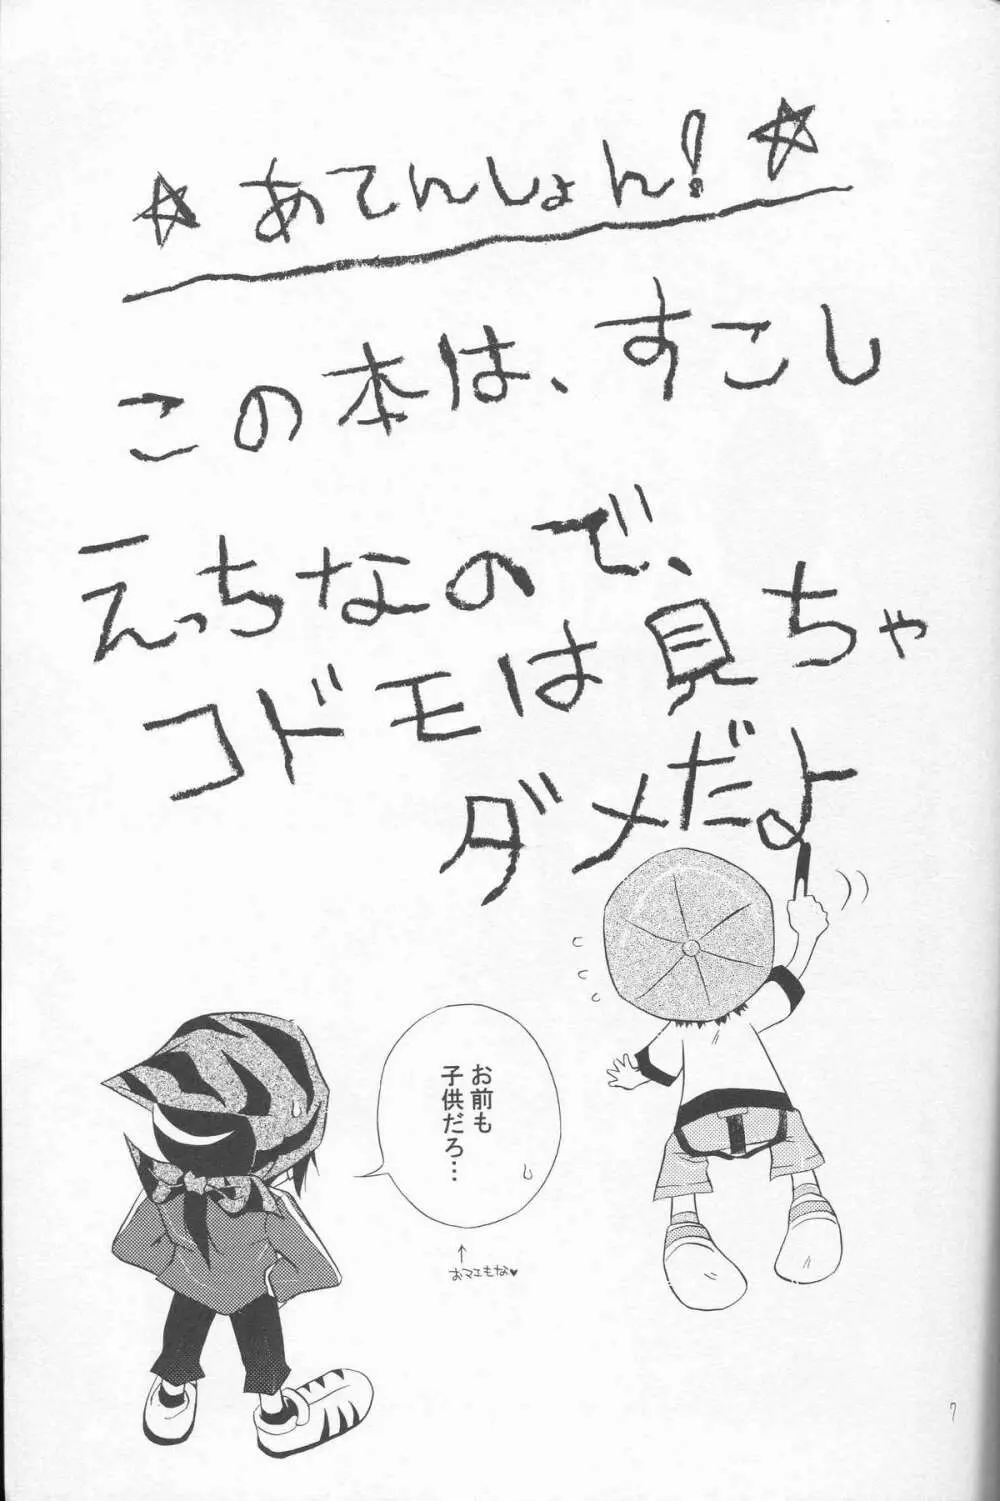 ☆あてんしょん!☆
この本は、すこし
えっちなので、
コドモは見ちゃ
ダメだよ
お前も
子供だろ…
↑
おマエもな♥
7